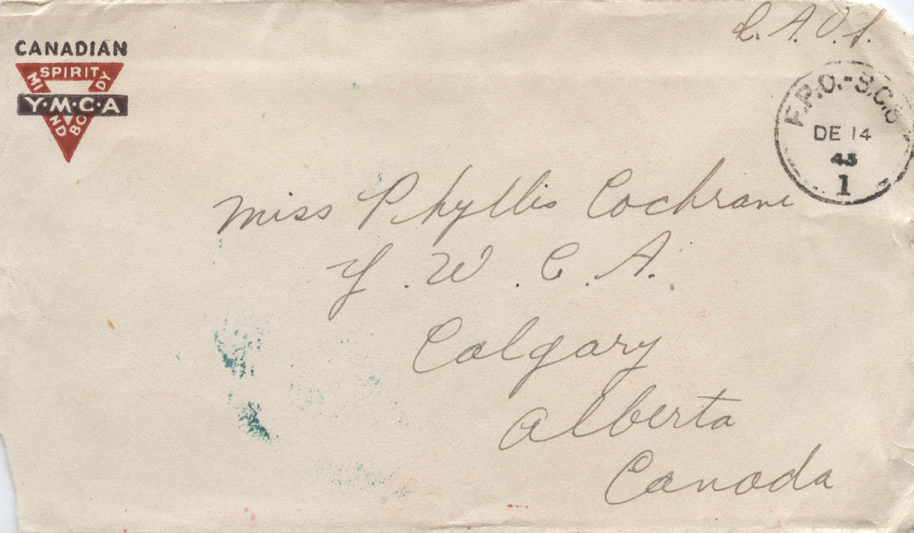 O.A.S.
CANADIAN
SPIRIT
MIND
BODY
Y·M·C·A
F.P.O.-S.C.
DE 14
43
1
Miss Phyllis Cochrane
Y.W.C.A.
Calgary
Alberta
Canada